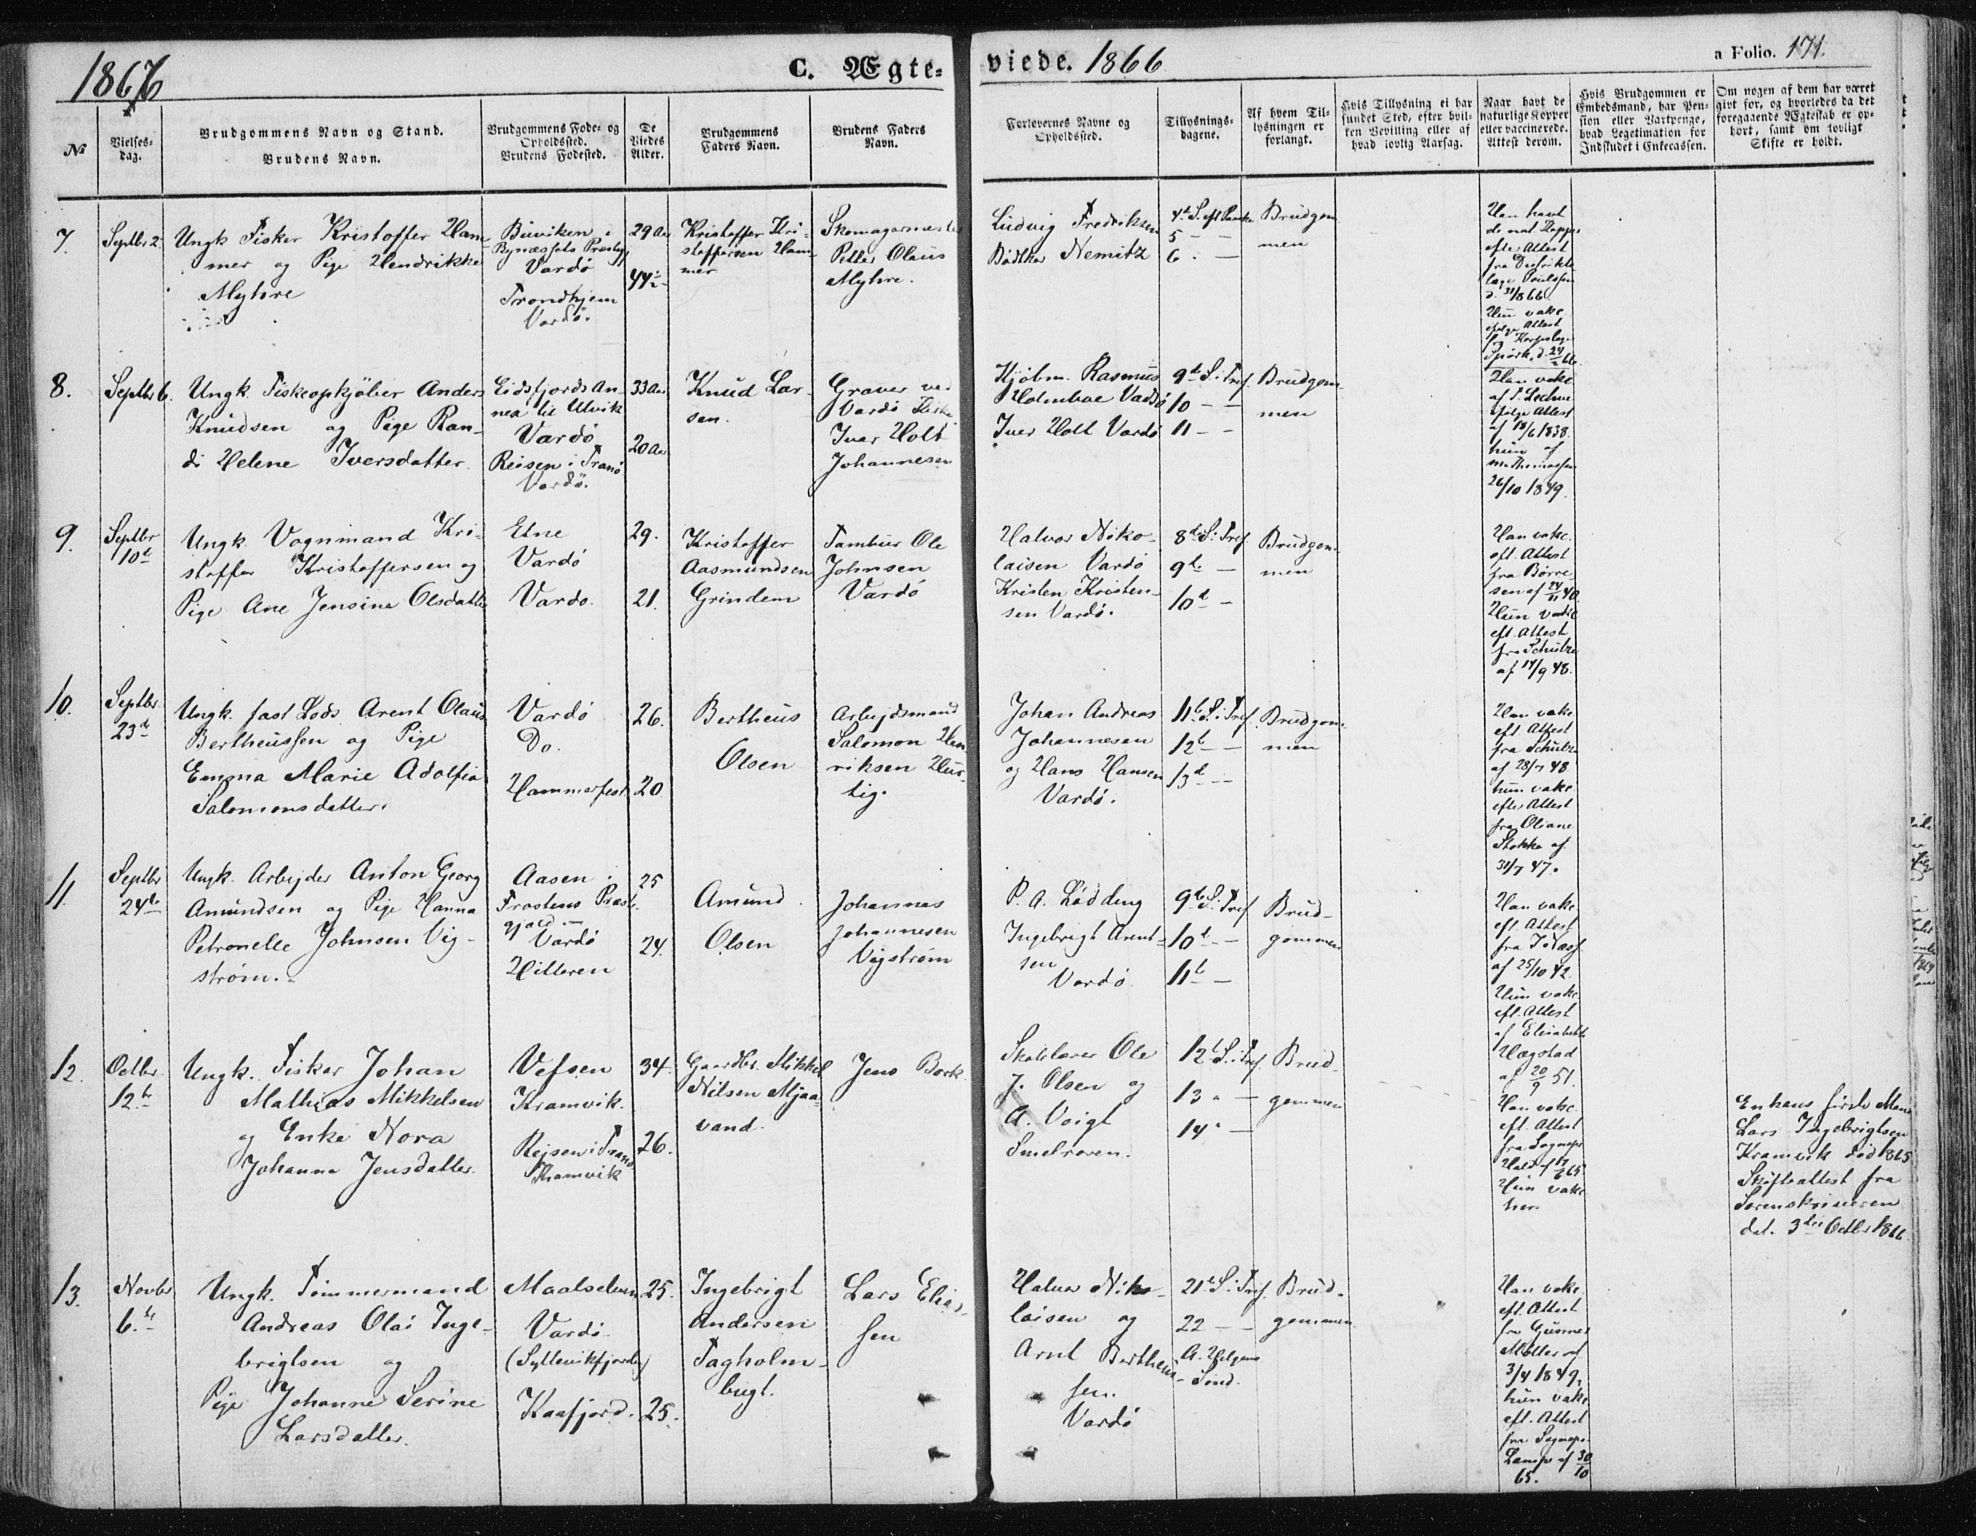 1866
C. Ægte-
viede. 1866
a Folio. 171.
№
Vielses-
dag.
Brudgommens Navn og Stand.
Brudens Navn.
Brudgommens Føde- og
Opholdssted.
Brudens Fødested.
De
Viedes
Alder.
Brudgommens
Faders Navn.
Brudens Faders
Navn.
Forlovernes Navne og
Opholdssted.
Tillysnings-
dagene.
Af hvem Til-
lysningen er
forlangt.
Hvis Tillysning ei har
fundet Sted, efter hvil-
ken Bevilling eller af
hvad lovlig Aarsag.
Naar havt de
naturlige Kopper
eller vaccinerede.
Attest derom.
Hvis Brudgommen er
Embedsmand, har Pen-
sion eller Vartpenge,
hvad Legetimation for
Indskudet i Enkecassen.
Om nogen af dem har været
givt før, og hvorledes da det
foregaaende Ægteskab er op-
hørt, samt om lovligt
Skifte er holdt.
7.
Septbr 2.
Ungk Fisker Kristoffer Ham
mer og Pige Hendrikke
Myhre
Buviken i
Bynæssets Præstegj
Vardø
Trondhjem
Vardø.
29 Aar
44
Kristoffer Kri-
stoffersen Ham-
mer
Skomagermester
Petter Olaus
Myhre.
Ludvig Fredriksen
Bødtker Nemitz
5 — —
6 . —
Brudgom
men
Han havt
de nat Kopper
efter Attest
fra Distrikts
læge
d. 31/8 66.
Hun vakc.
Attest
8.
Septbr 6.
Ungk. Fiskeopkjøber Anders
Knudsen og Pige Ran-
di Helene Iversdatter.
Eidsfjords An-
nex til Ulvik
Vardø
Reisen i Tranø
Vardø.
33 Aar
20 Aar
Knud Lar-
sen.
Graver ved
Vardø Kirke
Ivar Holt
Johannesen
Kjøbm. Rasmus
Holmboe Vadsø
Iver Holt Vardø
9de S. i Tref.
10 — —
11 — —
Brudgom-
men
Han vakc
af
ifølge Attest
af 18/6 1838.
hun af
26/10 1849.
9.
Septbr
10de
Ungk. Vognmand Kri-
stoffer Kristoffersen og
Pige Ane Jensine Olsdatter
Etne
Vardø
Vardø.
29.
21.
Kristoffer
Aasmundsen
Grindem
Tambur Ole
Johnsen
Vardø
Halvor Niko-
laisen Vardø
Kristen Kristen-
sen Vardø.
8de S. i Tref
9de —
10d —
Brudgom-
men
Han vakc.
eft. Attest
fra Børre-
sen af 24/11 40.
Hun vakc
eft. Attest
fra Schultz
af 17/9 48.
10.
Septbr
23de
Ungk. fast Lods Arent Olaus
Bertheussen og Pige
Emma Marie Adolfia
Salomonsdatter.
Vardø
Do.
Hammerfest
26.
20
Bertheus
Olsen
Arbejdsmand
Salomon Hen
riksen Hur-
tig.
Johan Andreas
Johannesen
og Hans Hansen
Vardø.
11te S. i Tref.
12t — —
13d — —
Brudgom-
men
Han vakc
eft Attest
fra Schultz
af 28/7 48
hun vakc
efter Attest
fra Oliane
Stokke af
31/7 47.
11.
Septbr
24de
Ungk. Arbejder Anton Georg
Amundsen og Pige Hanna
Petronelle Johnsen Vig-
strøm.
Aasen i
Frostens Præst-
gjæld —
Vardø
Hitteren
25
24.
Amund
Olsen
Johannes
Johannesen
Vigstrøm
P. A. Lødding
Ingebrigt Arent-
sen
Vardø
9de S. i Tref
10d — —
11te —
Brud-
gommen
Han vakc
eft. Attest
af 25/10 42.
Hun vakc
eft. Attest
af Elisabeth
Hægstad
af 20/9 51.
12.
Octbr.
12te
Ungk. Fisker Johan
Mathias Mikkelsen
og Enke Nora
Johanna Jensdatter.
Vefsen
Kramvik.
Rejsen i Tranø
Kramvik
34.
26.
Gaardbr. Mikkel
Nilsen Mjaa-
vand.
Jens Bork
Skolelærer Ole
J. Olsen og
A. Voigt
Smelroren.
12te S. i Tref.
13 . —
14 . —
Brud-
gommen
Han vakc.
eft. Attest
fra Sognepr.
Hun vakc
her
Enkens første Mand
Lars Ingebrigtsen
Kramvik død 1865
Skifteattest fra
Sorenskriveren
dat. 3die Octbr 1866.
13.
Novbr
6te
Ungk. Tømmermand
Andreas Olai Inge-
brigtsen og
Pige Johanne Serine
Larsdatter.
Maalselven
Vardø.
(Syltevikfjorden)
Kaafjord.
25.
25.
Ingebrigt
Andersen
Fagholm-
bugt.
Lars Elias-
sen
Halvor Niko-
laisen og
Arnt Bertheus-
sen.
Vardø
21de S. i Tref.
22 — —
A. Helgens
Sønd.
Brud-
gommen
Han vakc.
eft. Attest
fra
Møller af
3/4 1849,
hun vakc
eft. Attest
fra Sognepr.
af 30/10
65.